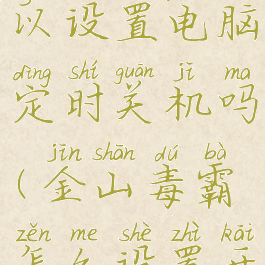 以设置电脑
dìng shí guān jī ma
定时关机吗
jīn shān dú bà
(金山毒霸
zěn me shè zhì kāi
怎么设置开